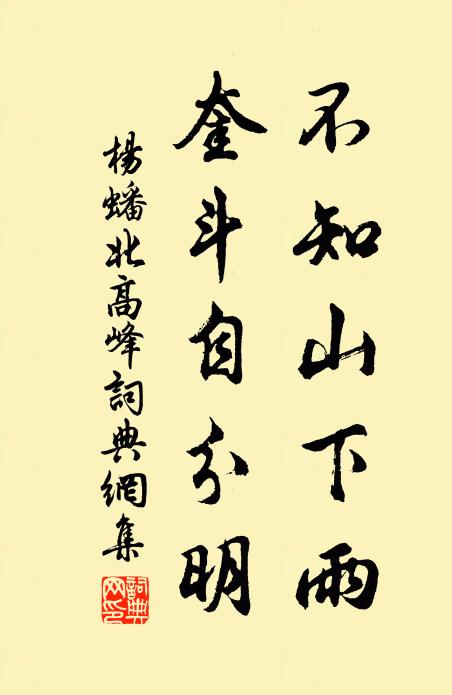 不知山下雨
奎斗自分明
楊蟠北高峰詞典網集
詞典網印